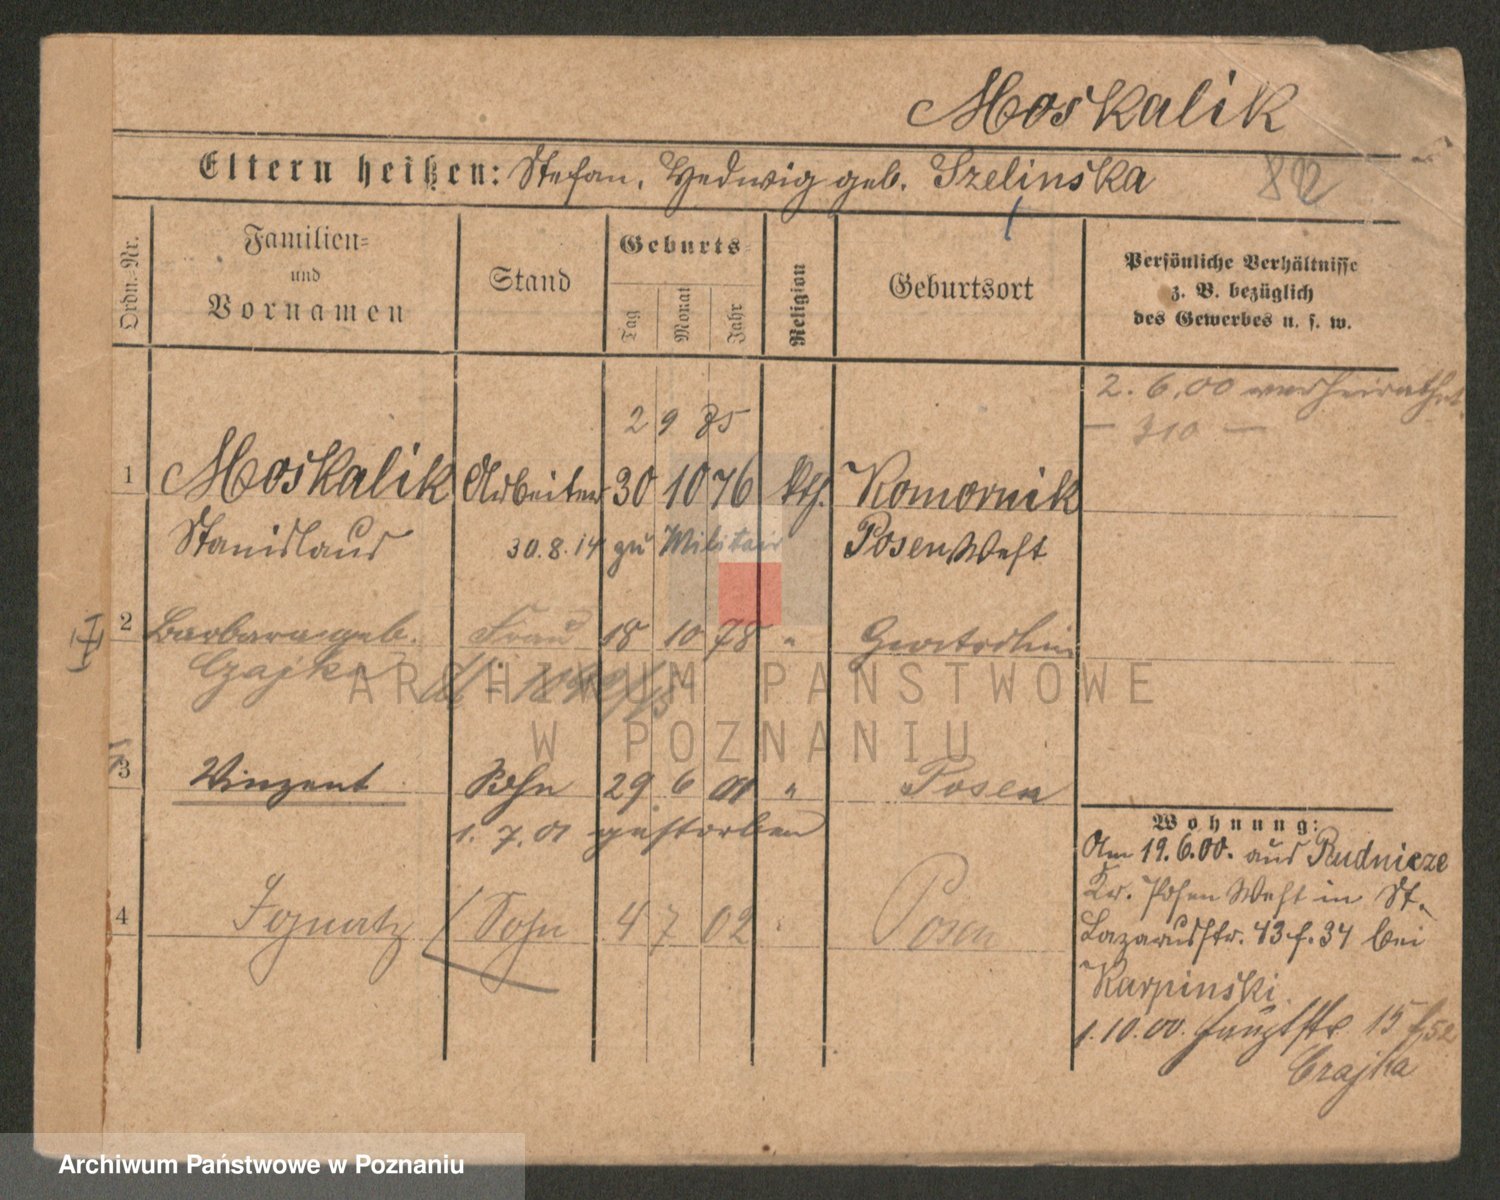 Moskalik
Eltern heißen: Stefan, Hedwig geb. Szelinska
Ordn.-Nr.
Familien-
und
Vornamen
Stand
Geburts-
Tag
Monat
Jahr
Religion
Geburtsort
Persönliche Verhältnisse
z. B. bezüglich
des Gewerbes u. s. w.
2. 6. 00 verheirathet
- 310 -
2 9 85
1 Moskalik Arbeiter 30 10 76 kth. Komornik
Stanislaus 30.8.14 zu Militair Posen West
2 Barbara geb. Frau 18 10 78 "
Czajka
3 Vinzent Sohn 29 6 01 " Posen
1. 7. 01 gestorben
4 Ignatz Sohn 4 7 02 Posen
Wohnung:
Am 19.6.00. aus Rudnicze
Kr. Posen West in St.
Lazarusstr. 43 f. 34 bei
Karpinski
1.10.00. Hauptstr 15 f. 52
Czajka
ARCHIWUM PAŃSTWOWE
W POZNANIU
Archiwum Państwowe w Poznaniu